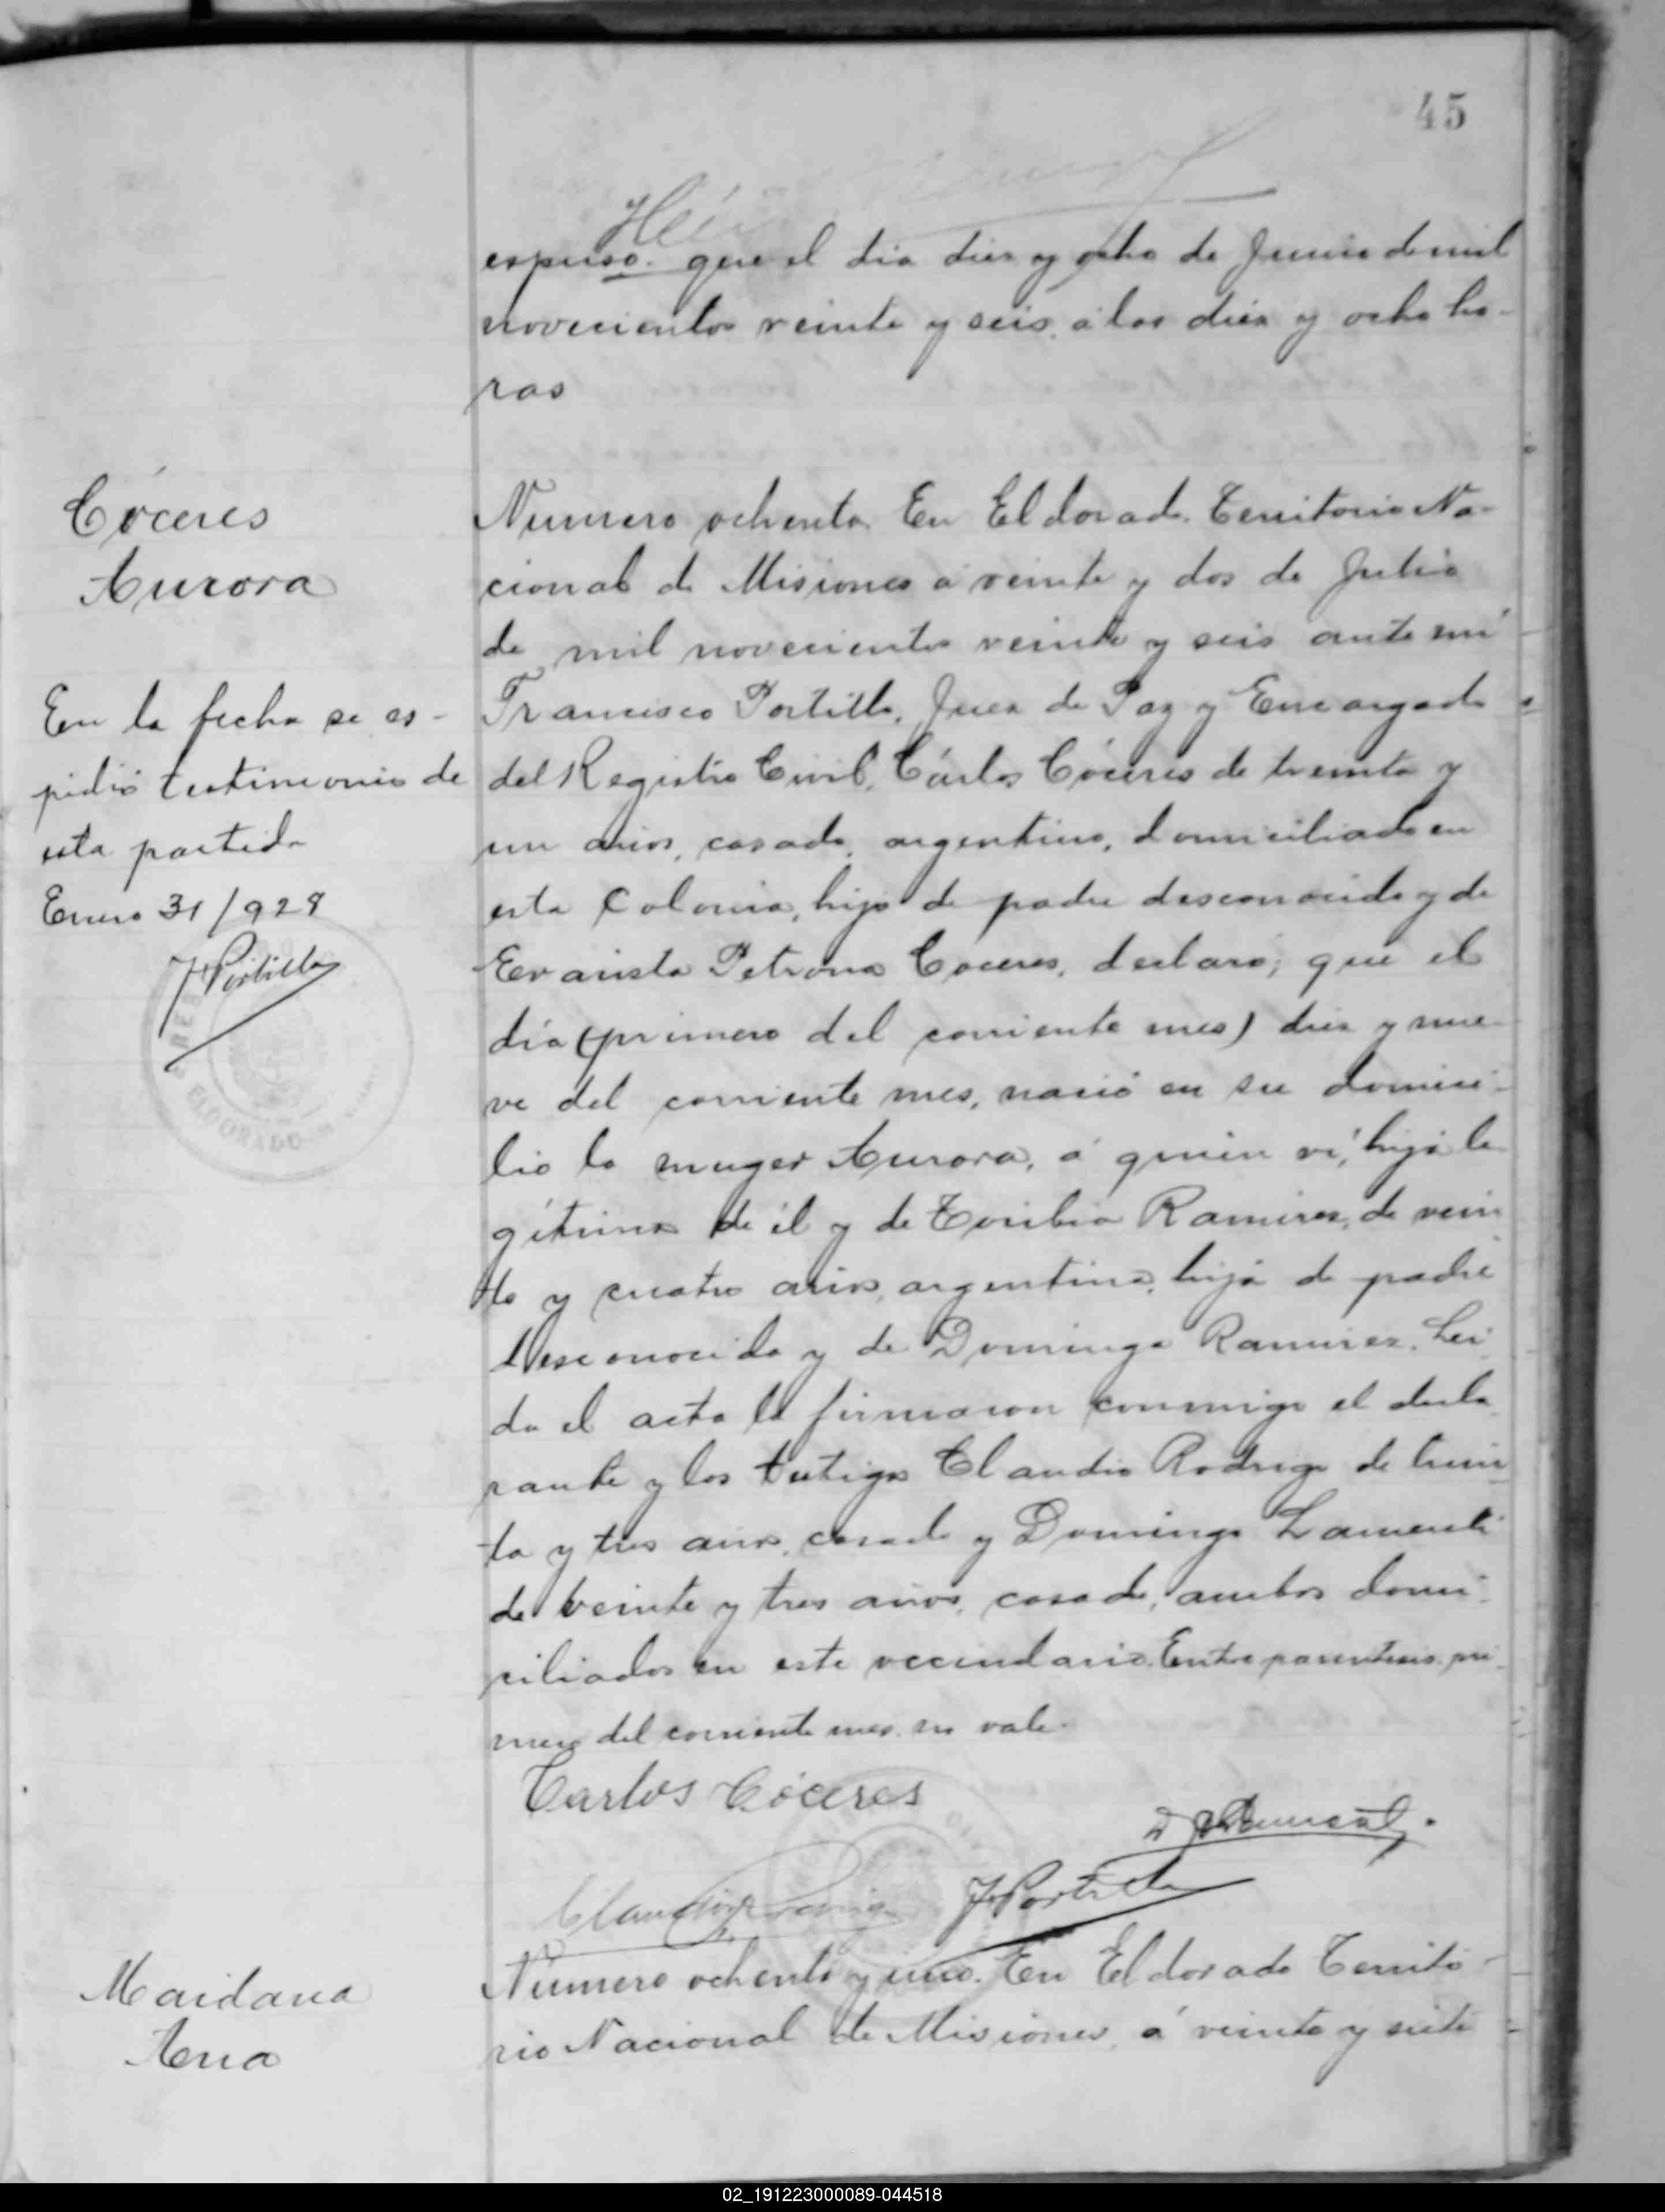 45
espuso que el dia diez y ocho de Junio de mil
novecientos veinte y seis, á las diez y ocho ho-
ras
Cóceres
Aurora
Numero ochenta. En Eldorado. Territorio Na-
cional de Misiones á veinte y dos de Julio
de mil novecientos veinte y seis ante mi
Francisco Portillo, Juez de Paz y Encargado
del Registro Civil, Cárlos Cóceres de treinta y
un años, casado, argentino, domiciliado en
esta Colonia, hijo de padre desconocido y de
Evarista Petrona Coceres, declaró; que el
día (primero del corriente mes) diez y nue-
ve del corriente mes, nació en su domici-
lio la muger Aurora, á quien ví, hija le
gítima de él y de Toribia Ramirez, de vein
te y cuatro años, argentina, hija de padre
desconocido y de Dominga Ramirez. Lei-
da el acta la firmaron conmigo el decla
rante y los testigos Claudio Rodrigo de trein
ta y tres años, casado y Domingo
de veinte y tres años, casado, ambos domi-
ciliados en este vecindario. Entre parentesis pri-
mero del corriente mes. no vale.
En la fecha se es-
pidió testimonio de
esta partida
Enero 31/928
F Portillo
ELDORADO
Carlos Cóceres
F Portillo
Maidana
Ana
Número ochenta y uno. En Eldorado Territo-
rio Nacional de Misiones, á veinte y siete
02_191223000089-044518